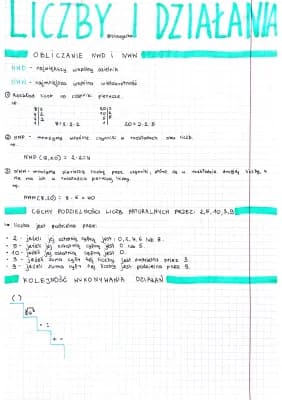 LICZBY I DZIAŁANIA
OBLICZANIE NWD i NWW
NWD - największy wspólny dzielnik
NWW - najmniejsza wspólna wielokrotność
① Rozkład liczb na czynniki pierwsze.
np.
8 | 2
4 | 2
2 | 2
1
8 = 2 · 2 · 2
20 | 2
10 | 2
5 | 5
1
20 = 2 · 2 · 5
② NWD - mnożymy wspólne czynniki w rozkładach obu liczb.
np.
NWD (8,20) = 2 · 2 = 4
③ NWW - mnożymy pierwszą liczbę przez czynniki, które są w rozkładzie drugiej liczby, a
nie ma ich w rozkładzie pierwszej liczby.
np.
NWW (8,20) = 8 · 5 = 40
CECHY PODZIELNOŚCI LICZB NATURALNYCH PRZEZ: 2, 5, 10, 3, 9
liczba jest podzielna przez:
• 2 - jeżeli jej ostatnią cyfrą jest: 0, 2, 4, 6 lub 8.
• 5 - jeżeli jej ostatnią cyfrą jest 0 lub 5.
• 10 - jeżeli jej ostatnią cyfrą jest 0.
• 3 - jeżeli suma cyfr tej liczby jest podzielna przez 3.
• 9 - jeżeli suma cyfr tej liczby jest podzielna przez 9.
KOLEJNOŚĆ WYKONYWANIA DZIAŁAŃ
( )
• :
+ -